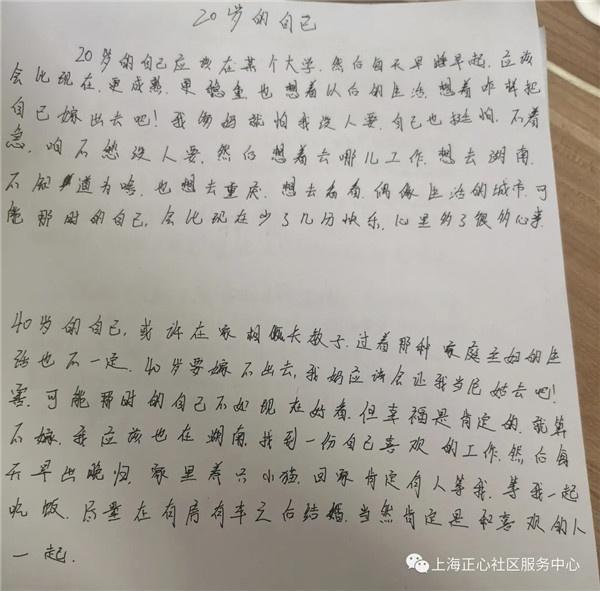 20岁的自己
20岁的自己应该在某个大学.然后每天早睡早起.应该
会比现在.更成熟.更稳重.也想着以后的生活.想着咋样把
自己嫁出去吧!我妈就怕我没人要.自己也挺怕.不着
急.咱不愁没人要.然后想着去哪儿工作.想去湖南.
不知道为啥.也想去重庆.想去看看.偶像生活的城市.可
能那时的自己.会比现在少了几分快乐.心里多了很多心事.
40岁的自己.或许在家相夫教子.过着那种家庭主妇的生
活也不一定.40岁要嫁不出去.我妈应该会让我当尼姑去吧!
害.可能那时的自己不如现在好看.但幸福是肯定的.就算
不嫁.我应该也在湖南.找到一份自己喜欢的工作.然后每
天早出晚归.家里养只小猫.回家肯定有人等我.等我一起
吃饭.尽量在有房有车之后结婚.当然肯定是和喜欢的人
一起.
上海正心社区服务中心